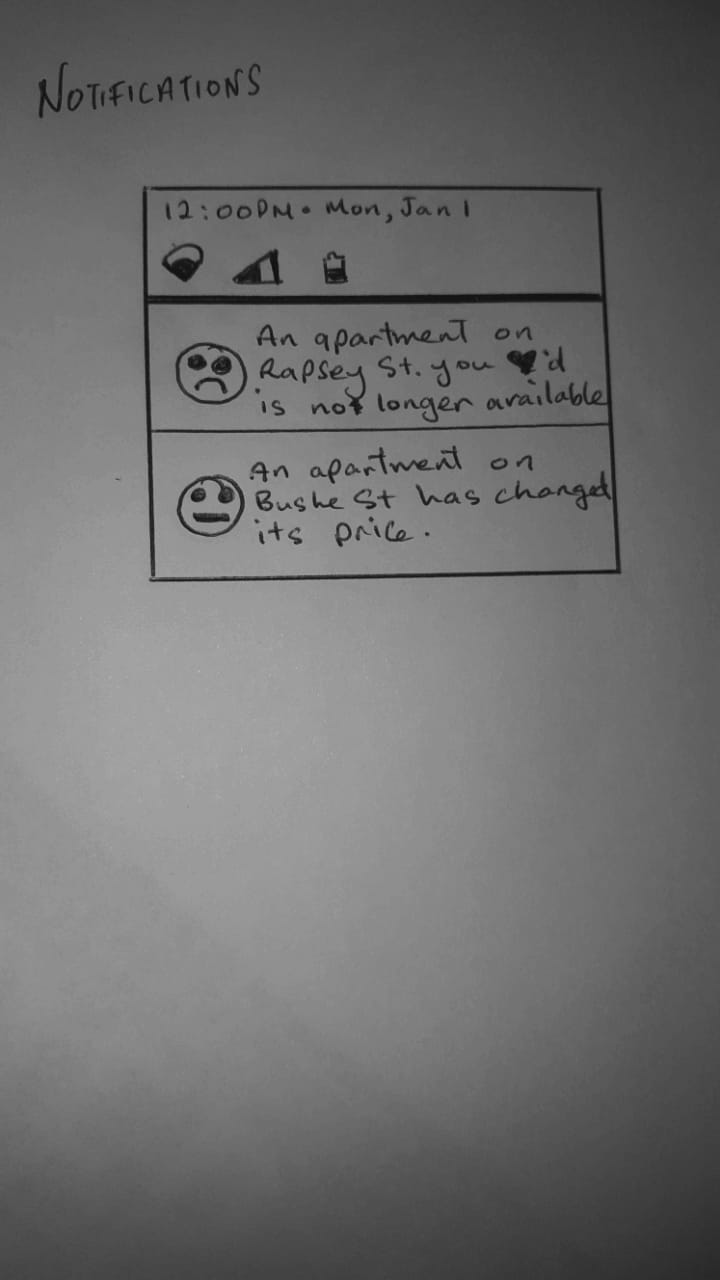 NOTIFICATIONS
12:00PM • Mon, Jan 1
An apartment on
Rapsey St. you ♥'d
is not longer available
An apartment on
Bushe St has changed
its price.